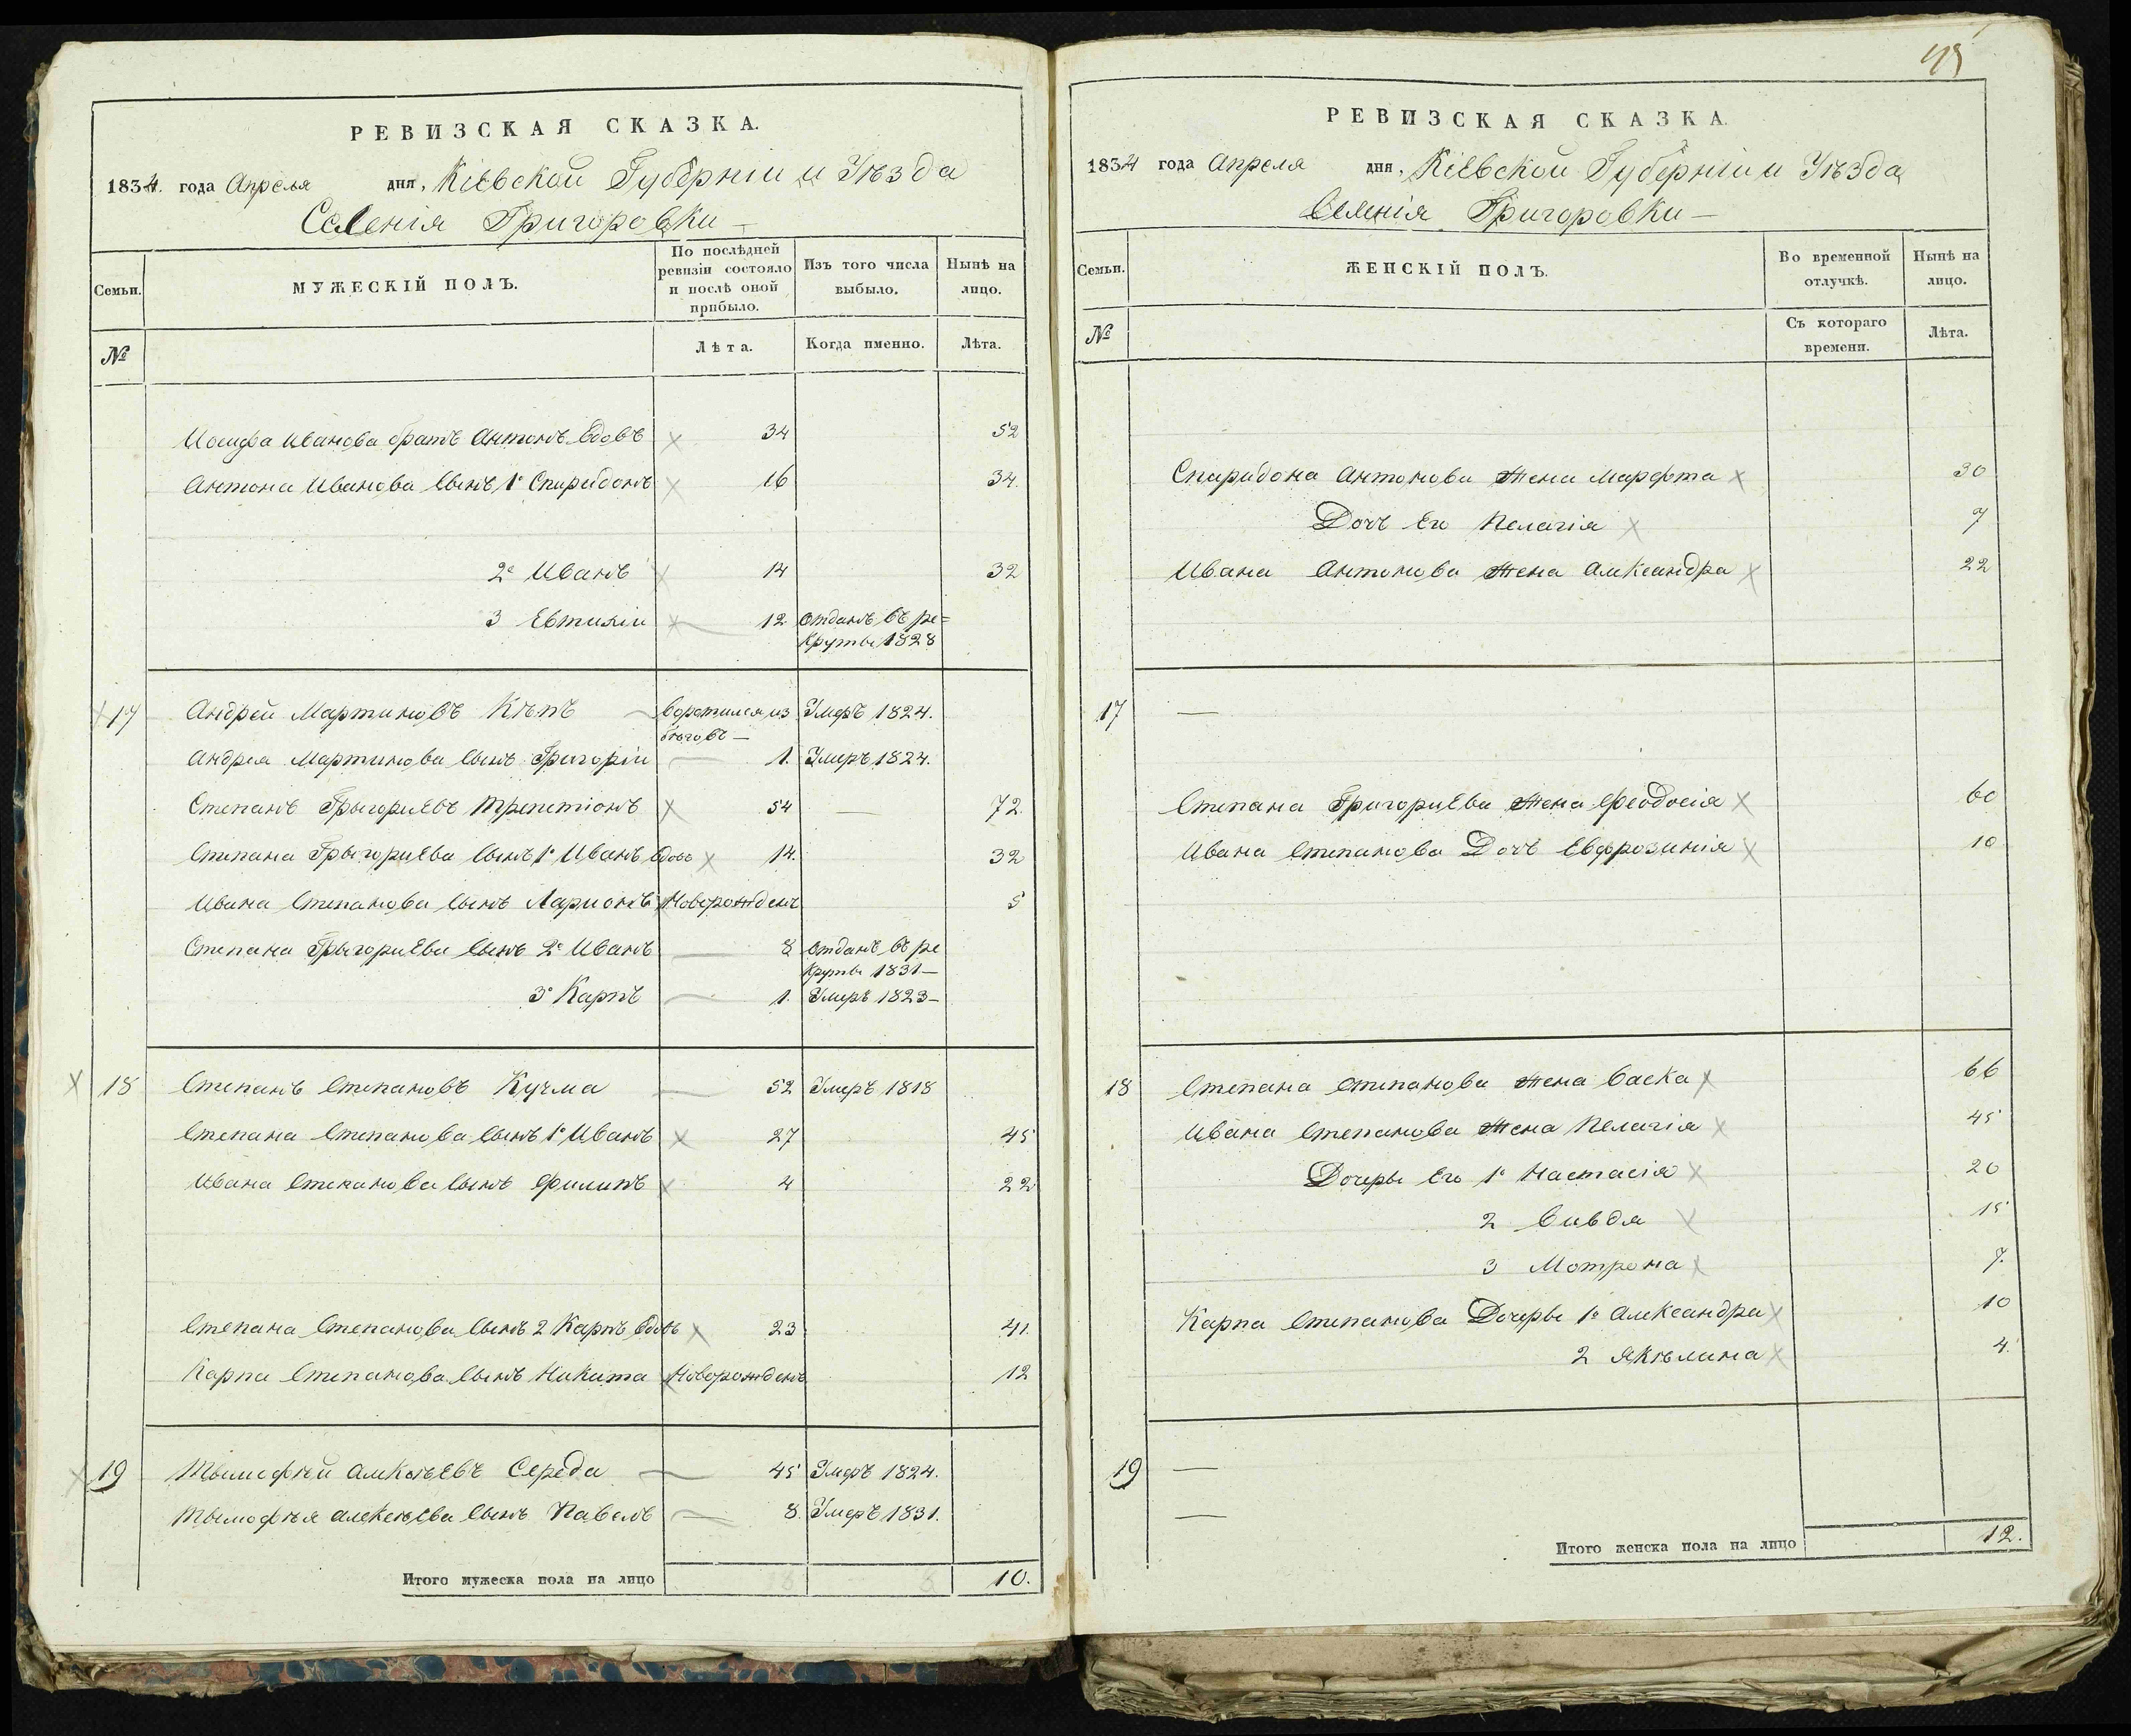 РЕВИЗСКАЯ СКАЗКА.
1834. года Апреля дня, Кіевской Губерніи и Уѣзда
Селенія Григоровки —
Семьи.
МУЖЕСКІЙ ПОЛЪ.
По послѣдней ревизіи состояло и послѣ оной прибыло.
Изъ того числа выбыло.
Нынѣ на лицо.
№
Лѣта.
Когда именно.
Лѣта.
Иосифа Иванова братъ Антонъ вдовъ 34 52
Антона Иванова сынъ 1й Спиридонъ 16 34
2й Иванъ 14 32
3 Евтихіи 12 отданъ въ ре=
круты 1828
17 Андрей Мартиновъ Кѣпъ воротился из Умеръ 1824.
бѣговъ —
Андрея Мартинова сынъ Григоріи 1. Умеръ 1824.
Степанъ Грыгориевъ 54 — 72
Степана Грыгориева сынъ 1й Иванъ вдовъ 14. 32
Ивана Степанова сынъ Ларионъ Новорожденъ 5
Степана Грыгориева сынъ 2й Иванъ 8 отданъ въ ре
круты 1831 —
3й Карпъ 1. Умеръ 1823 —
18 Степанъ Степановъ Кучма 52 Умеръ 1818
Степана Степанова сынъ 1й Иванъ 27 45
Ивана Степанова сынъ Филипъ 4 22
Степана Степанова сынъ 2 Карпъ вдовъ 23 41.
Карпа Степанова сынъ Никита Новорожденъ 12
19 Тымофѣй Алексѣевъ Середа 45 Умеръ 1824.
Тымофѣя Алексѣева сынъ Павелъ 8. Умеръ 1831.
Итого мужеска пола на лицо 10.
45
РЕВИЗСКАЯ СКАЗКА.
1834 года Апреля дня, Кіевской Губерніи и Уѣзда
Селенія Григоровки —
Семьи.
ЖЕНСКІЙ ПОЛЪ.
Во временной отлучкѣ.
Нынѣ на лицо.
№
Съ котораго времени.
Лѣта.
Спиридона Антонова жена Марфта 30
Дочь Его Пелагія 7
Ивана Антонова жена Александра 22
17 —
Степана Григориева жена Феодосія 60
Ивана Степанова Дочь Евфрозинія 10
18 Степана Степанова жена Васка 66
Ивана Степанова жена Пелагія 45
Дочеры Его 1я Настасія 20
2 Вивдя 15
3 Мотрона 7.
Карпа Степанова Дочеры 1я Александра 10
2 Якѣлина 4.
19 —
—
Итого женска пола на лицо 12.